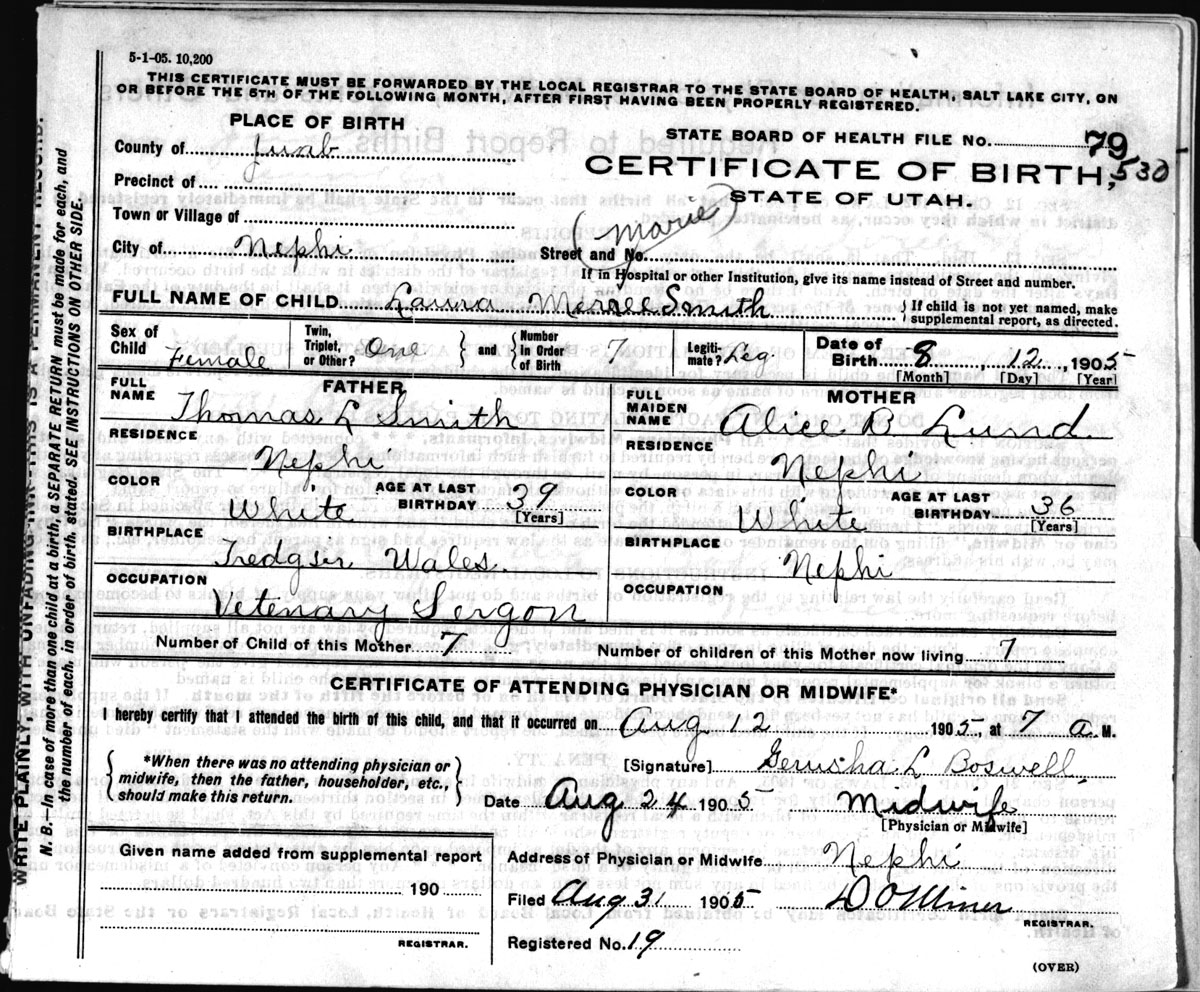 5-1-05. 10,200
THIS CERTIFICATE MUST BE FORWARDED BY THE LOCAL REGISTRAR TO THE STATE BOARD OF HEALTH, SALT LAKE CITY, ON
OR BEFORE THE 5TH OF THE FOLLOWING MONTH, AFTER FIRST HAVING BEEN PROPERLY REGISTERED.
WRITE PLAINLY, WITH UNFADING INK—THIS IS A PERMANENT RECORD.
N. B.—In case of more than one child at a birth, a SEPARATE RETURN must be made for each, and
the number of each, in order of birth, stated. SEE INSTRUCTIONS ON OTHER SIDE.
PLACE OF BIRTH
County of Juab
Precinct of
Town or Village of
City of Nephi
STATE BOARD OF HEALTH FILE No. 79
CERTIFICATE OF BIRTH, 530
STATE OF UTAH.
(Marie
Street and No.
If in Hospital or other Institution, give its name instead of Street and number.
FULL NAME OF CHILD Laura Merree Smith
If child is not yet named, make
supplemental report, as directed.
Sex of Child Female
Twin, Triplet, or Other? One
and Number in Order of Birth 7
Legitimate? Leg
Date of Birth 8, 12, 1905
[Month] [Day] [Year]
FATHER
FULL NAME Thomas L Smith
RESIDENCE Nephi
COLOR White
AGE AT LAST BIRTHDAY 39 [Years]
BIRTHPLACE Tredgir Wales.
OCCUPATION Vetenary Sergon
MOTHER
FULL MAIDEN NAME Alice B Lund
RESIDENCE Nephi
COLOR White
AGE AT LAST BIRTHDAY 36 [Years]
BIRTHPLACE Nephi
OCCUPATION
Number of Child of this Mother 7
Number of children of this Mother now living 7
CERTIFICATE OF ATTENDING PHYSICIAN OR MIDWIFE*
I hereby certify that I attended the birth of this child, and that it occurred on Aug 12 1905, at 7 a. M.
*When there was no attending physician or
midwife, then the father, householder, etc.,
should make this return.
[Signature] Gerusha L Boswell
Date Aug 24 1905 Midwife
[Physician or Midwife]
Given name added from supplemental report
190
REGISTRAR.
Address of Physician or Midwife Nephi
Filed Aug 31 1905 D O Miner
REGISTRAR.
Registered No. 19
(OVER)